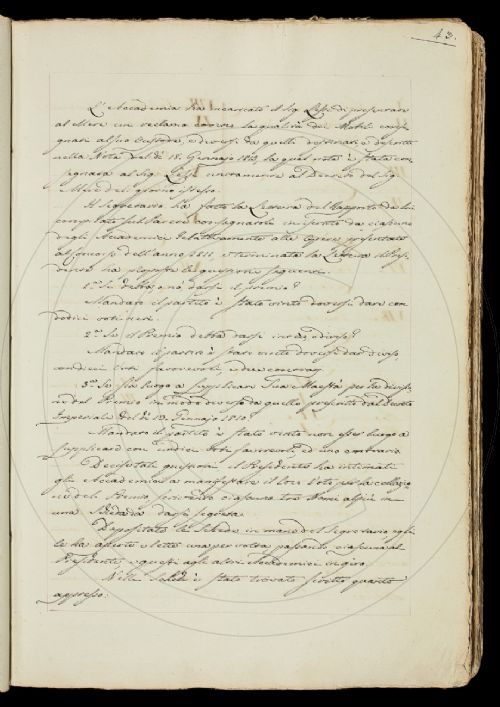 43.
L'Accademia ha incaricato il Sig. Lessi di preparare
al Mere un reclamo contro la qualità dei Mobili conse
gnati al suo Custode, e diversi da quelli destinati e descritti
nella Nota del dì 18. Gennajo 1812, la qual nota è stata con
segnata al Sig. Lessi unitamente al Decreto del Sig.
Mere del giorno istesso.
Il Segretario ha fatto la Lettura del Rapporto da lui
compilato sul Parere consegnatoli in iscritto da ciascuno
degli Accademici relativamente alle Opere presentate
al Concorso dell'anno 1811, e terminata la Lettura il Presi
dente ha proposto le questioni seguenti.
1.ª Se debba o nò darsi il premio?
Mandato il partito è stato vinto doversi dare con
dodici voti neri.
2.ª Se il Premio debba darsi intero, o diviso?
Mandato il partito è stato vinto doversi dar diviso,
con dieci voti favorevoli, e due contrarj.
3.ª Se sia luogo a supplicare Sua Maestà per la divisio
ne del Premio in modo diverso da quello prescritto dal Decreto
Imperiale del dì 19. Gennajo 1810.
Mandato il partito è stato vinto non esser luogo a
supplicare con undici voti favorevoli, ed uno contrario.
Decise tali questioni il Presidente ha intimati
gli Accademici a manifestare il loro voto per la collazio
ne del Premio, scrivendo ciascuno tre Nomi al più in
una Scheda darsi segreta.
Depositate le Schede in mano del Segretario egli
le ha aperte e lette una per volta passando ciascuna al
Presidente, e questi agli altri Accademici in giro.
Nelle Schede è stato trovato scritto quanto
appresso: